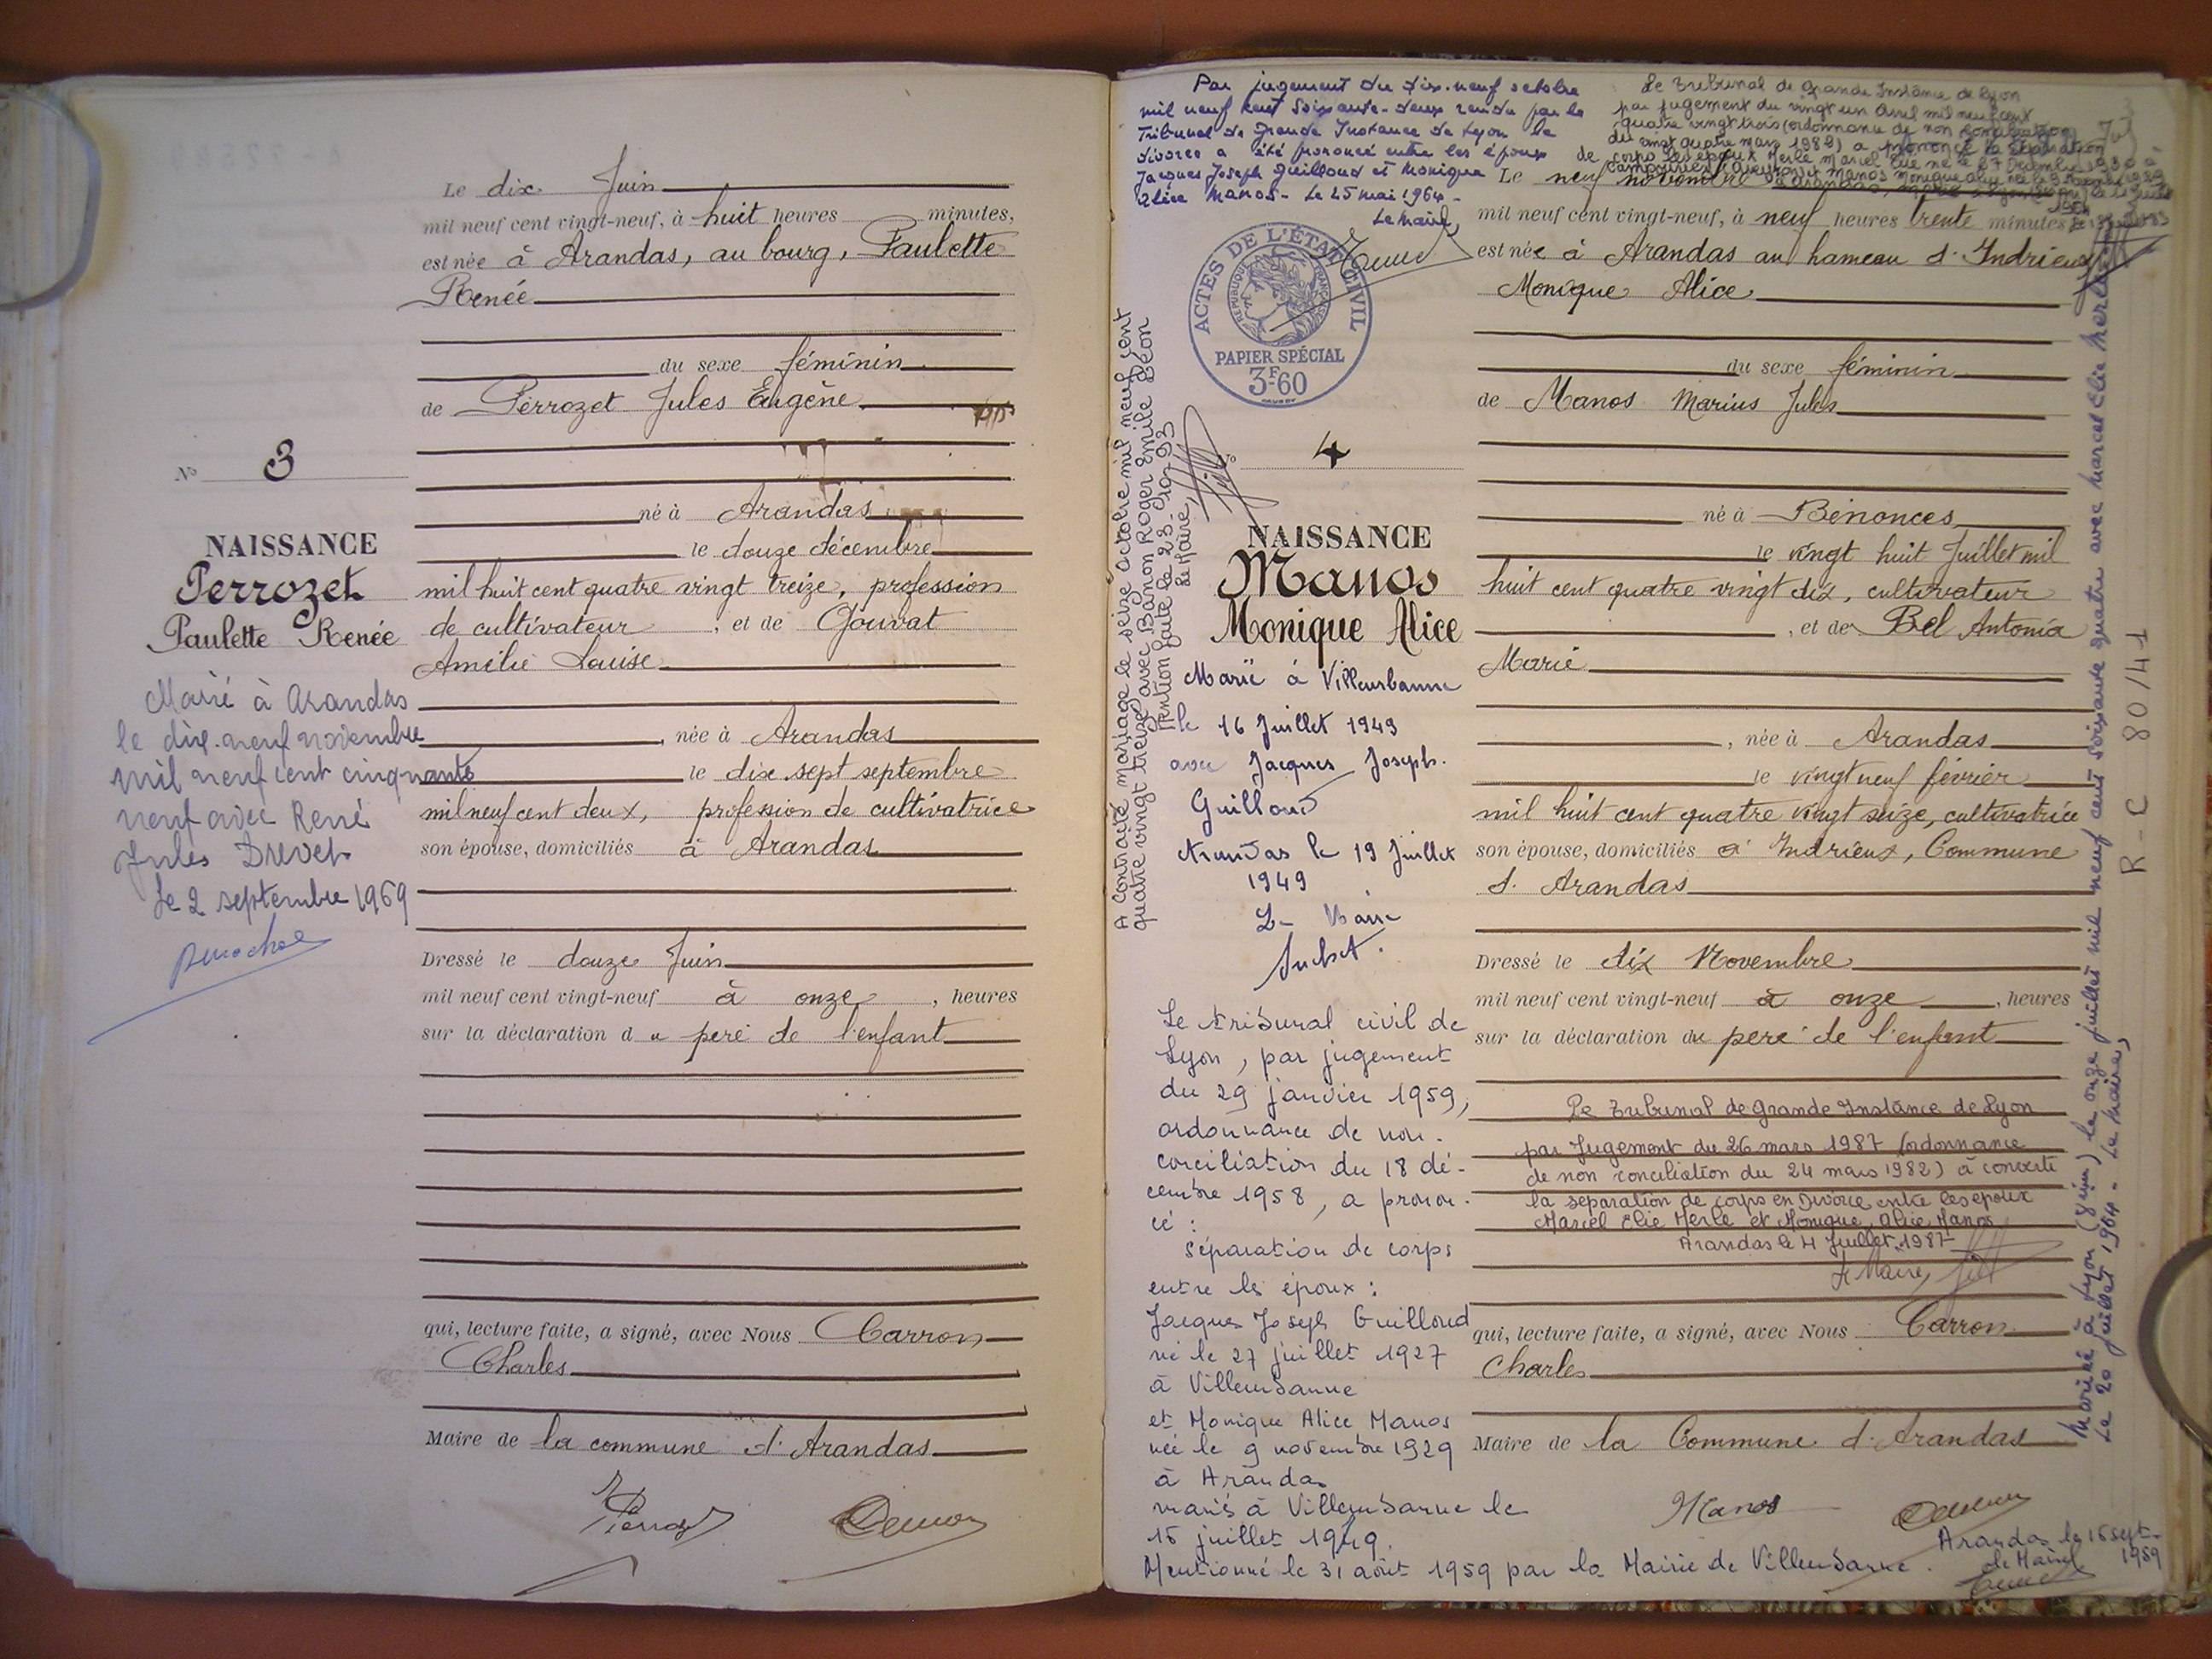 Le dix Juin
mil neuf cent vingt-neuf, à huit heures minutes,
est née à Arandas, au bourg, Paulette
Renée
du sexe féminin
de Perrozet Jules Eugène
né à Arandas
le douze décembre
mil huit cent quatre vingt treize, profession
de cultivateur, et de Gouvat
Amélie Louise
, née à Arandas
le dix sept septembre
mil neuf cent deux, profession de cultivatrice
son épouse, domiciliés à Arandas
Dressé le douze Juin
mil neuf cent vingt-neuf à onze, heures
sur la déclaration du père de l'enfant
qui, lecture faite, a signé, avec Nous Carron
Charles
Maire de la commune d'Arandas
No 3
NAISSANCE
Perrozet
Paulette Renée
Marié à Arandas
le dix-neuf novembre
mil neuf cent cinquante
neuf avec René
Jules Drevet
Le 2 septembre 1969
Par jugement du dix-neuf octobre
mil neuf cent soixante-deux rendu par le
Tribunal de Grande Instance de Lyon le
divorce a été prononcé entre les époux
Jacques Joseph Guilloud et Monique
Alice Manos - Le 25 mai 1964 -
Le Maire,
Le Tribunal de Grande Instance de Lyon
par jugement du vingt un Avril mil neuf cent
quatre vingt trois (ordonnance de non conciliation
du vingt quatre mars 1982) a prononcé la séparation
de corps les époux Merle Marcel Elie né le 27 Décembre 1930 à
ACTES DE L'ÉTAT CIVIL
RÉPUBLIQUE FRANÇAISE
PAPIER SPÉCIAL
3F-60
A contracté mariage le seize octobre mil neuf cent
quatre vingt treize avec Banon Roger Emile Léon
Mention faite le 23-10-93
Le Maire,
No 4
NAISSANCE
Manos
Monique Alice
Marié à Villeurbanne
le 16 Juillet 1949
avec Jacques Joseph.
Guilloud
Arandas le 19 Juillet
1949
Le Maire
Le tribunal civil de
Lyon, par jugement
du 29 janvier 1959,
ordonnance de non-
conciliation du 18 dé-
cembre 1958, a pronon-
cé :
séparation de corps
entre les époux :
Jacques Joseph Guilloud
né le 27 juillet 1927
à Villeurbanne
et Monique Alice Manos
née le 9 novembre 1929
à Arandas
mariés à Villeurbanne le
16 juillet 1949.
Mentionné le 31 août 1959 par la Mairie de Villeurbanne.
Arandas le 15 sept-
1959
Le Maire
Le neuf novembre
mil neuf cent vingt-neuf, à neuf heures trente minutes
est née à Arandas au hameau d'Indrieux
Monique Alice
du sexe féminin
de Manos Marius Jules
né à Bénonces
le vingt huit Juillet mil
huit cent quatre vingt dix, cultivateur
, et de Bel Antonia
Marie
, née à Arandas
le vingt neuf février
mil huit cent quatre vingt seize, cultivatrice
son épouse, domiciliés à Indrieux, Commune
d'Arandas
Dressé le dix Novembre
mil neuf cent vingt-neuf à onze, heures
sur la déclaration du père de l'enfant
Le Tribunal de Grande Instance de Lyon
par Jugement du 26 mars 1987 (ordonnance
de non conciliation du 24 mars 1982) à converti
la séparation de corps en Divorce entre les époux
Marcel Elie Merle et Monique, Alice Manos
Arandas le 4 Juillet 1987
Le Maire,
qui, lecture faite, a signé, avec Nous Carron
Charles
Maire de la Commune d'Arandas
Manos
Marié à Lyon (8ème) le onze juillet mil neuf cent soixante quatre avec Marcel Elie Merle
Le 20 juillet 1964 - Le Maire,
R-C 80/41